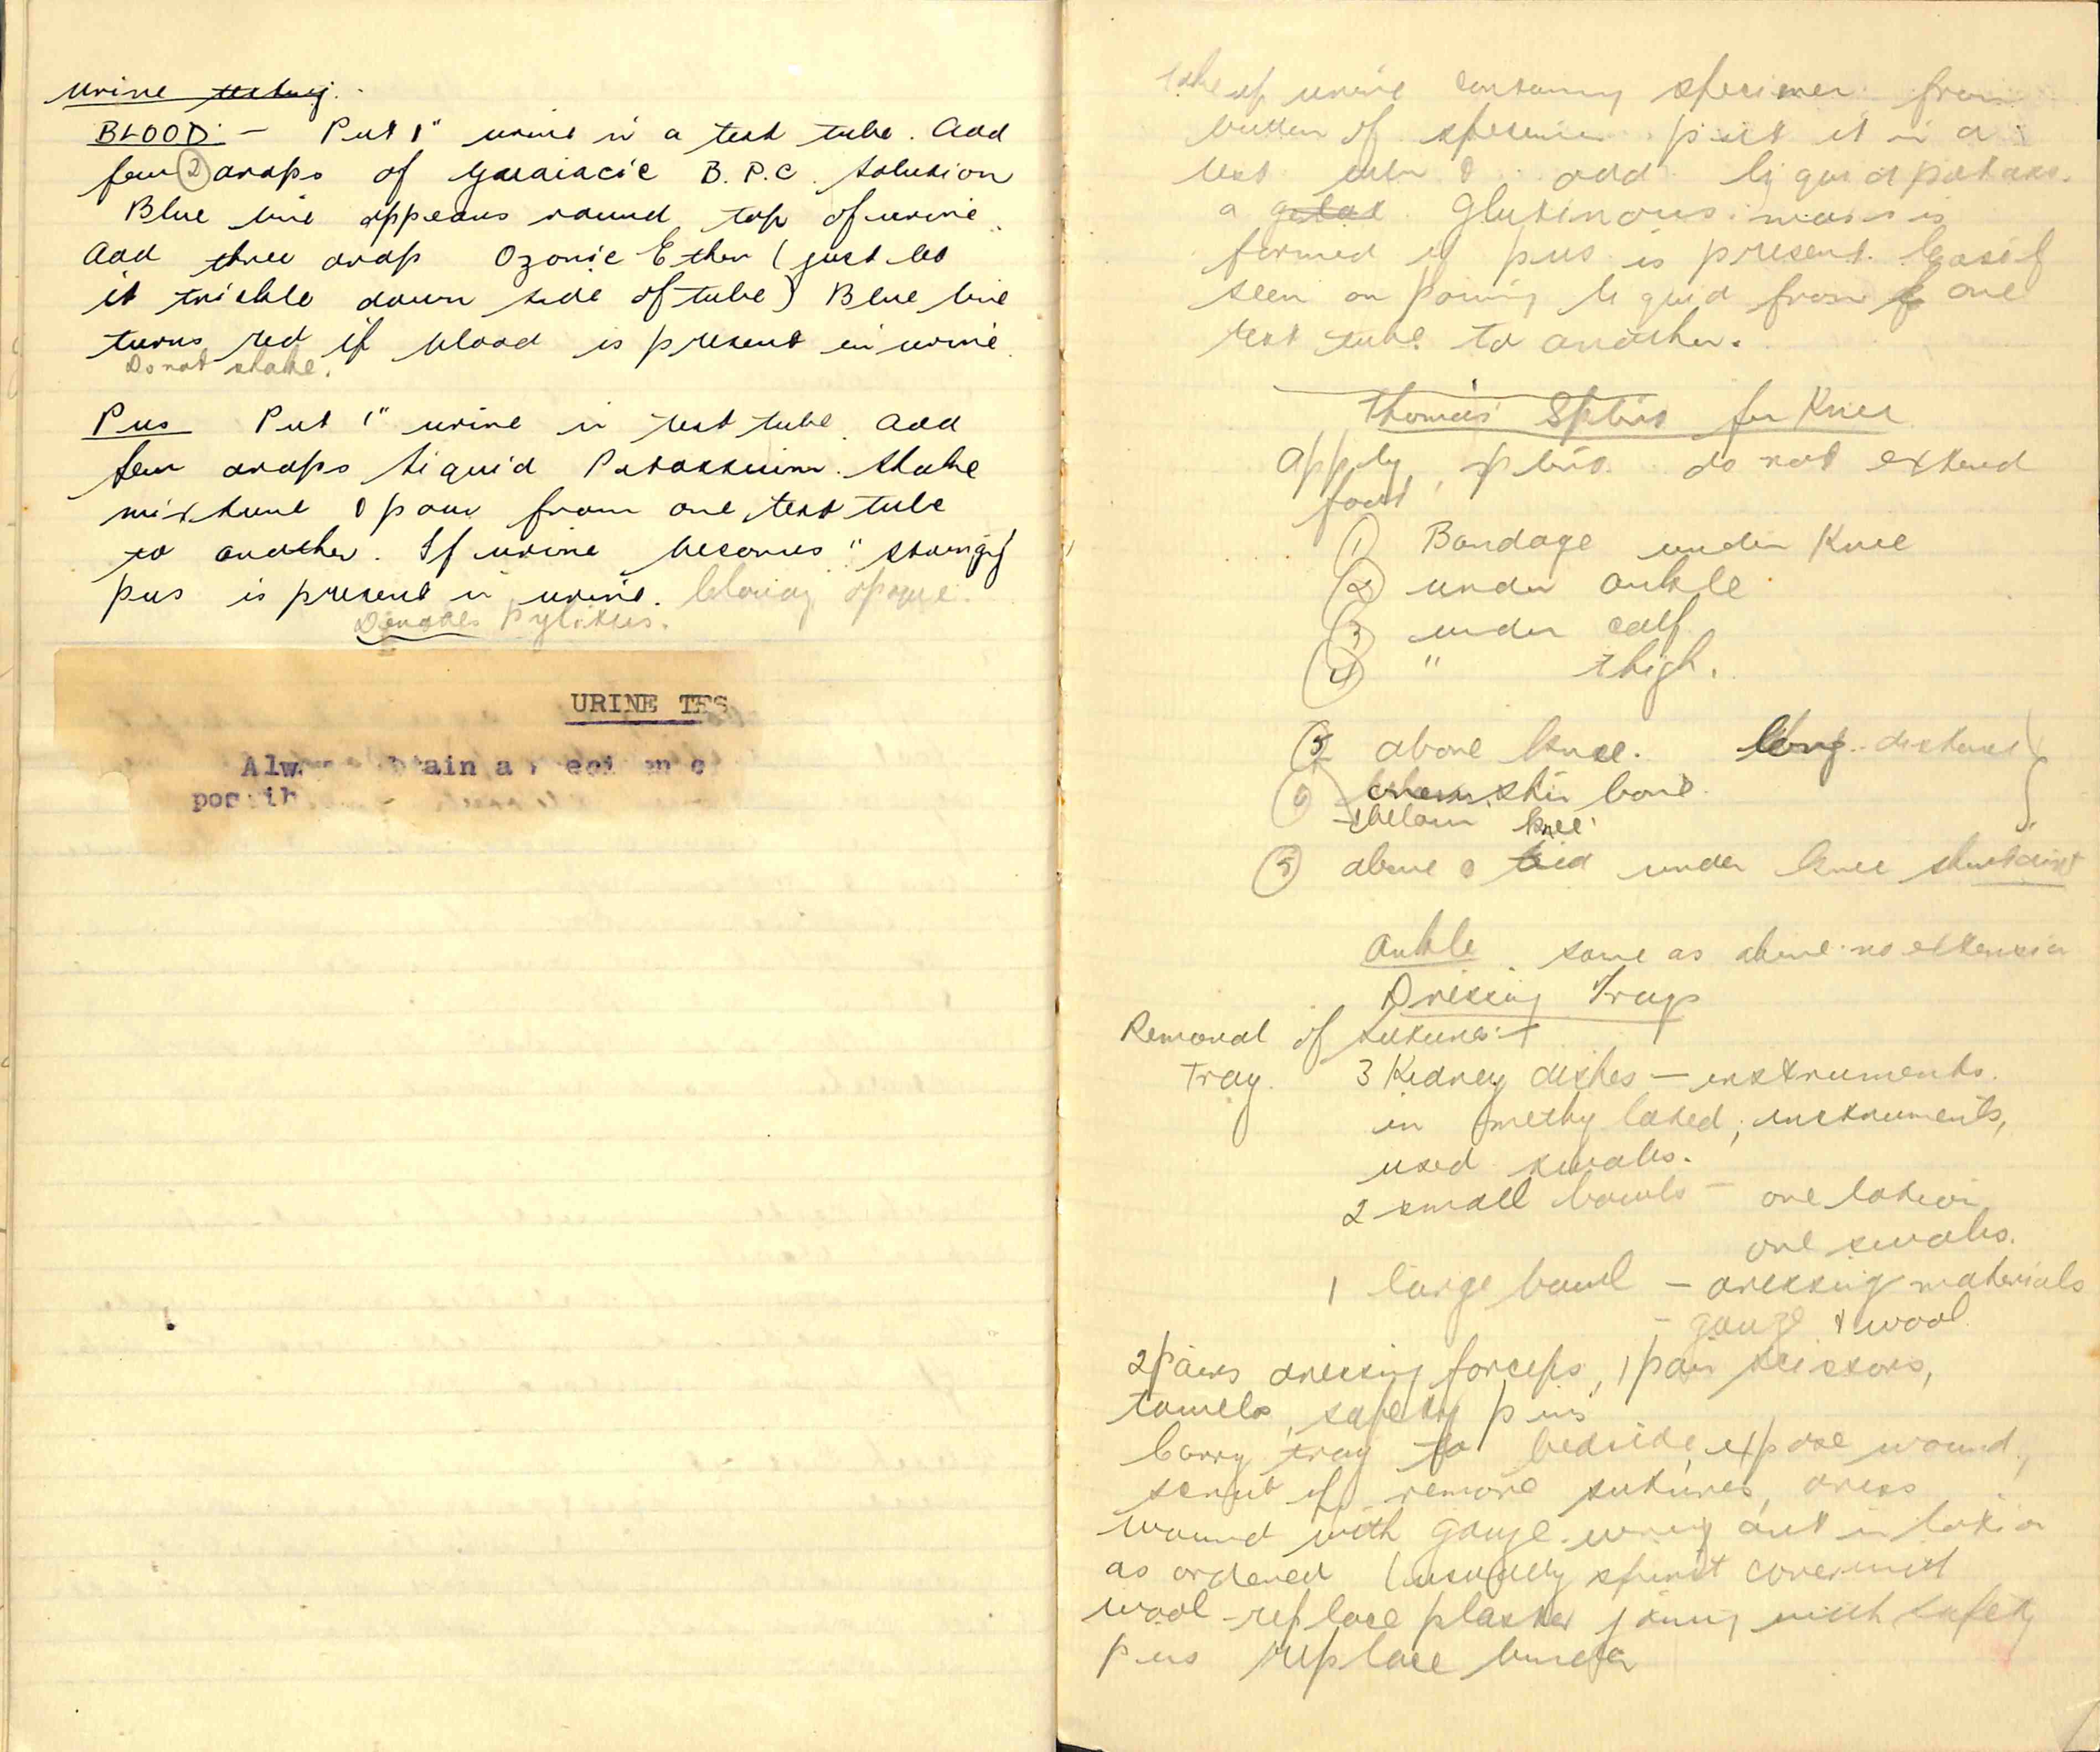 Urine testing.
BLOOD:- Put 1" urine in a test tube. Add
few 2 drops of guaiacic B.P.C. solution
Blue line appears round top of urine.
Add three drops Ozonic Ether (just let
it trickle down side of tube) Blue line
turns red if blood is present in urine.
Do not shake.
Pus Put 1" urine in test tube. Add
few drops liquid Potassium. Shake
mixture & pour from one test tube
to another. If urine becomes "stringy"
pus is present in urine. Cloudy opaque.
Denotes Pylitus.
URINE TES
Alw btain a eci en o
pos ib
Take up urine specimen from
bottom of specimen put it in a
test tube & add liquid potass.
a Glutinous mass is
formed if pus is present. Easily
seen on pouring liquid from one
test tube to another.
Thomas' Splint for Knee
Apply splint. do not extend
foot
(1) Bandage under Knee
(2) under ankle
(3) under calf
(4) " thigh.
(5) above knee. long distance
(6) shin bone
below knee
(5) above & tied under knee short dist
Ankle same as above no extension
Dressing Trays
Removal of sutures:-
Tray. 3 Kidney dishes — instruments.
in methylated; instruments,
used swabs.
2 small bowls - one lotion
one swabs.
1 large bowl - dressing materials
- gauze & wool
2 pairs dressing forceps, 1 pair scissors,
towels, safety pins
Carry tray to bedside, expose wound,
scrub up, remove sutures, dress
wound with gauze wrung out in lotion
as ordered (usually spirit cover with
wool - replace plaster joining with safety
pins replace binder